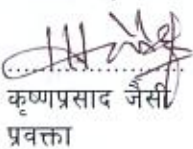 कृष्णप्रसाद जैसी
प्रवक्ता